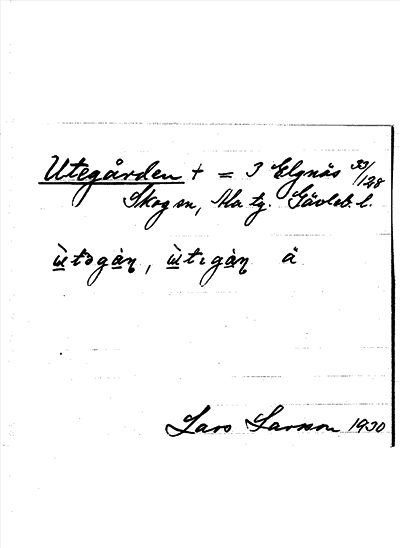 Utegården + = 3 Elgnäs 33/128
Skog sn, Ala tg. Gävleb. l.
ù̲təgà̲ɳ, ù̲tıgà̲ɳ ä
Lars Larsson 1930